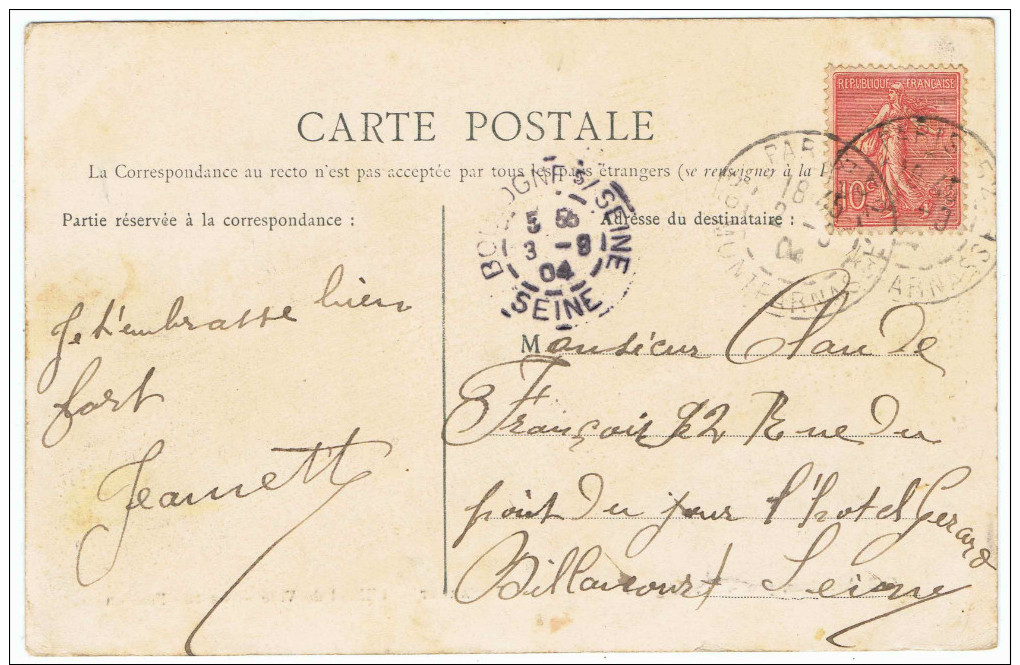 REPUBLIQUE FRANÇAISE
10c
CARTE POSTALE
La Correspondance au recto n'est pas acceptée par tous les pays étrangers (se renseigner à la
Partie réservée à la correspondance :
Adresse du destinataire :
BOULOGNE S/SEINE
3 -9
04
SEINE
PARIS
18
MONTPARNASSE
04
Je t'embrasse bien
fort
Jeannett
Monsieur Claude
François 92 Rue du
point du jour l'hotel Gerard
Billancourt Seine